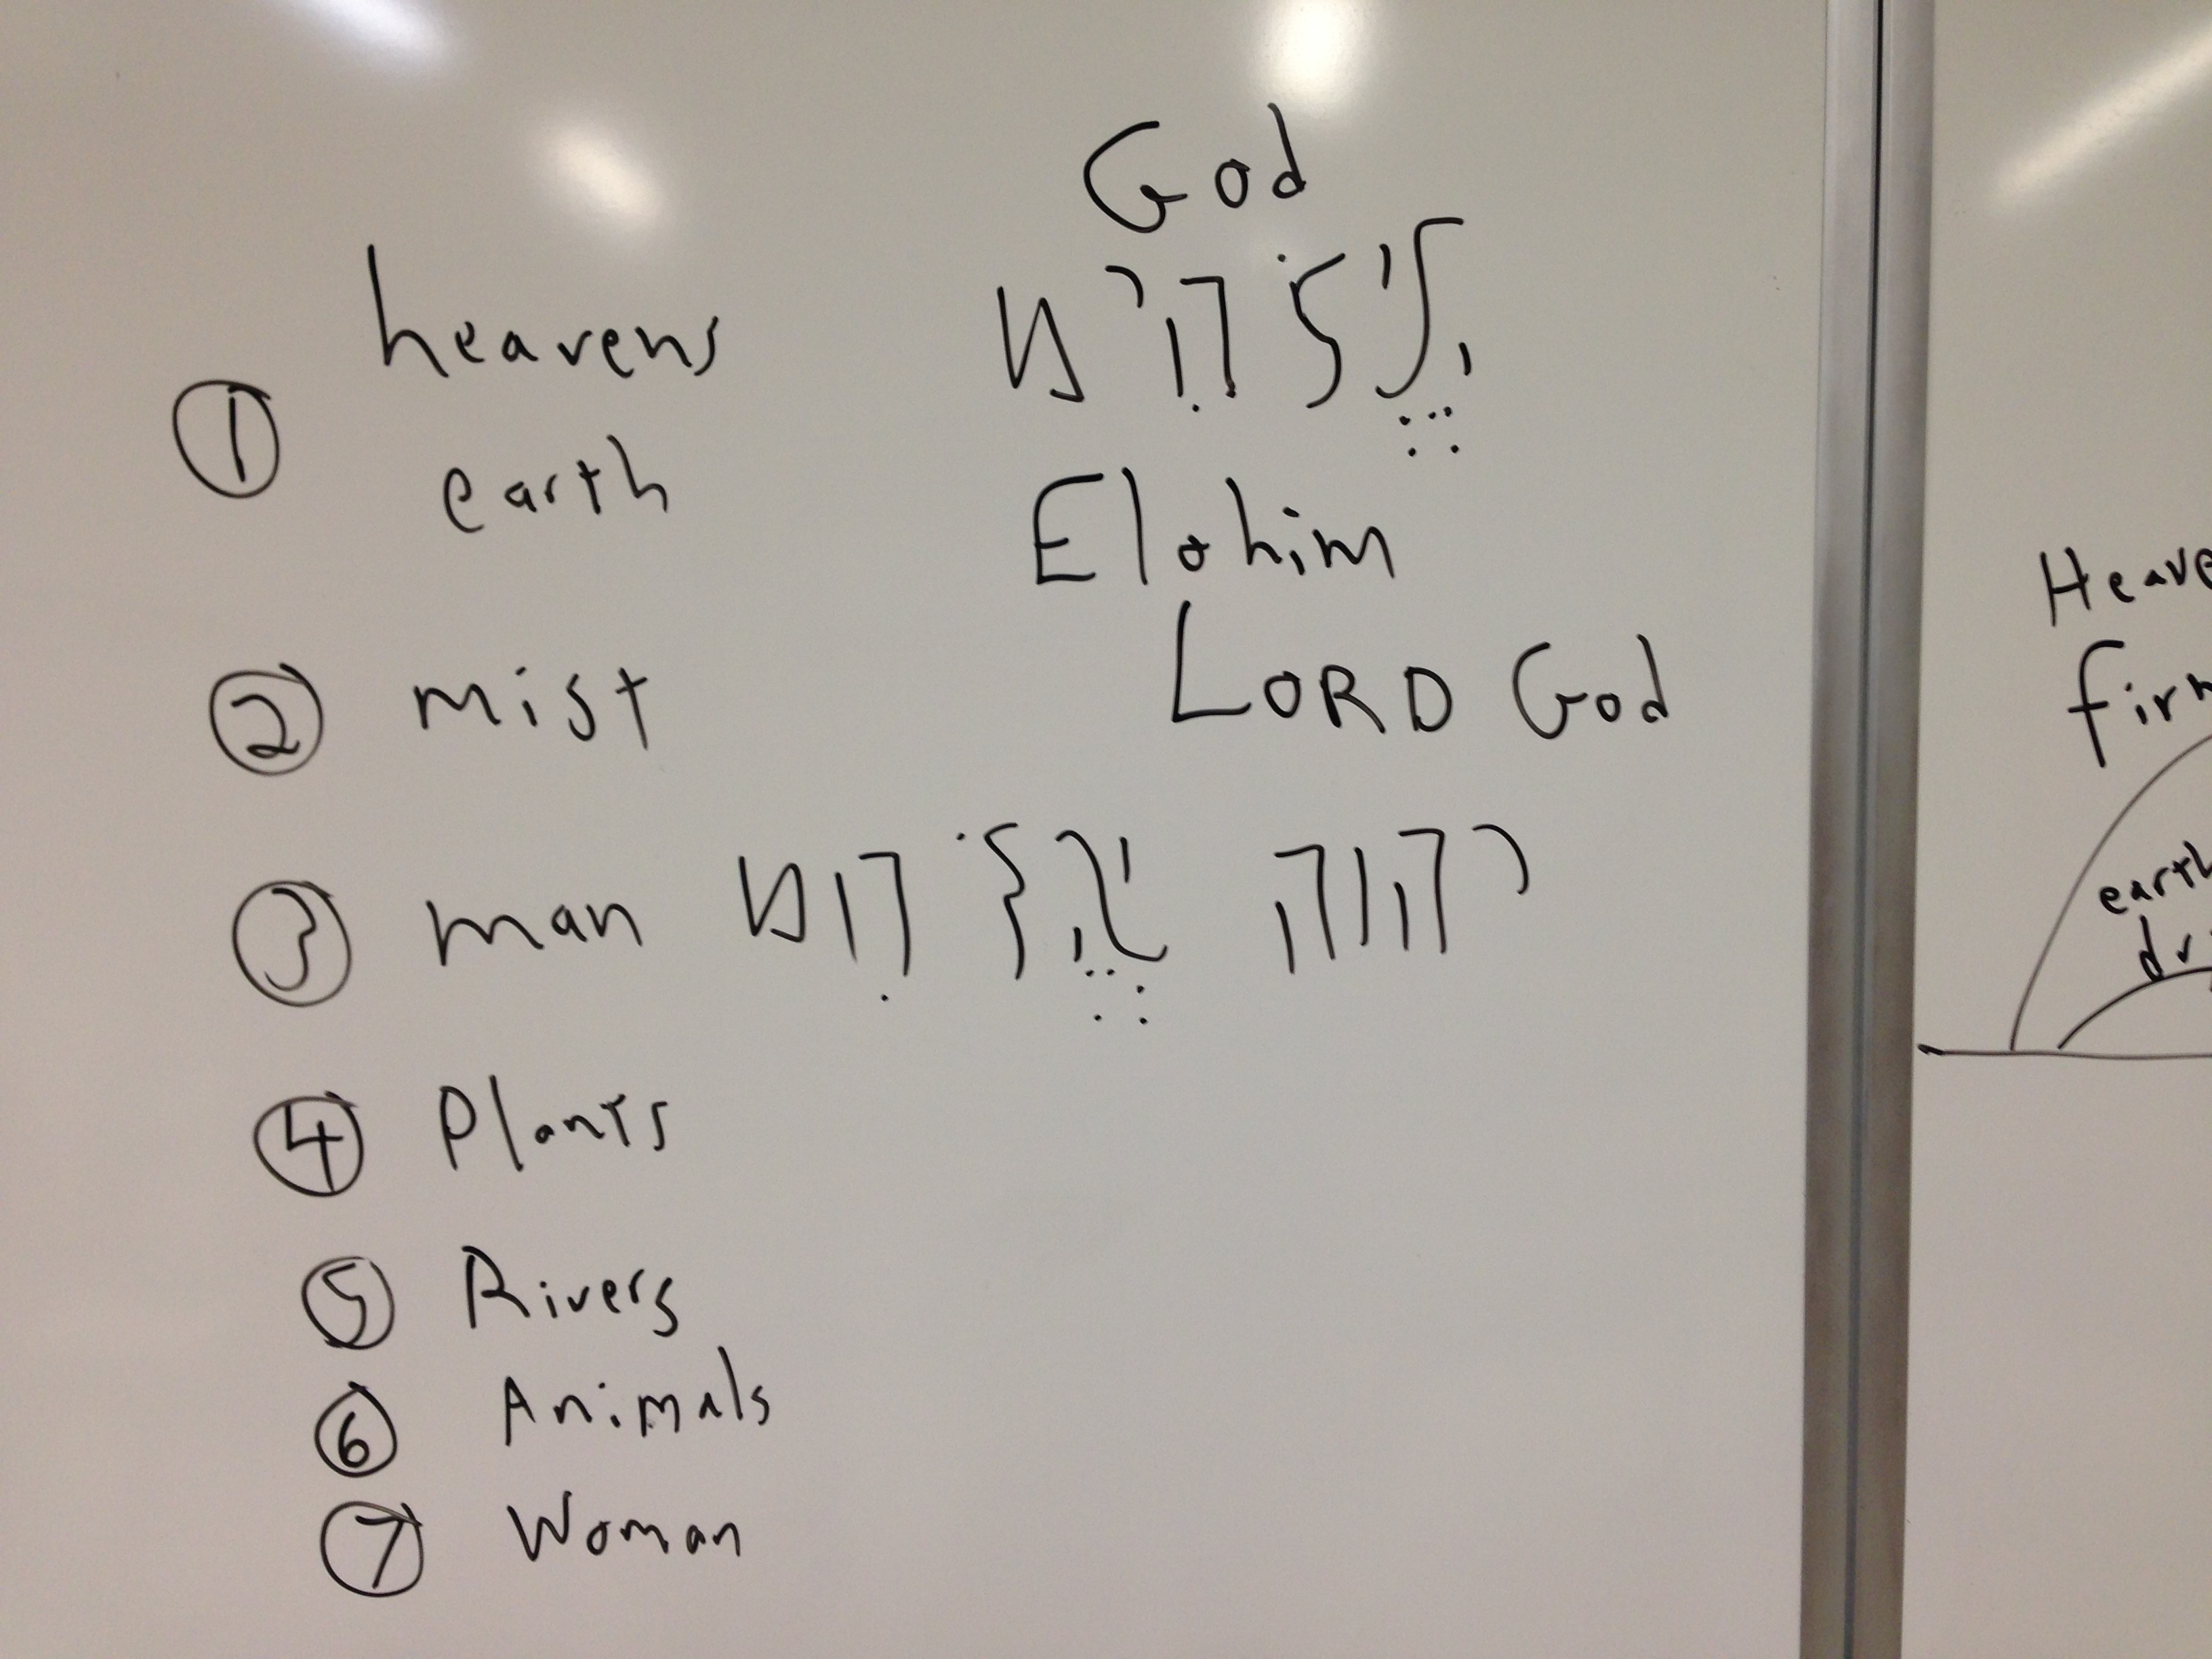 God
heavens
אֱלֹהִים
①
earth
Elohim
② mist
LORD God
③ man
יהוה אֱלֹהִם
④ Plants
⑤ Rivers
⑥ Animals
⑦ Woman
Heave
firm
earth